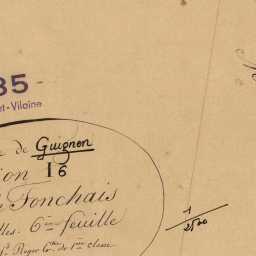 35
et-Vilaine
e de Guignen
ion I 6
Fonchais
lles. 6ème feuille
Mr. Roger Cotre de 1ère classe
1/2500